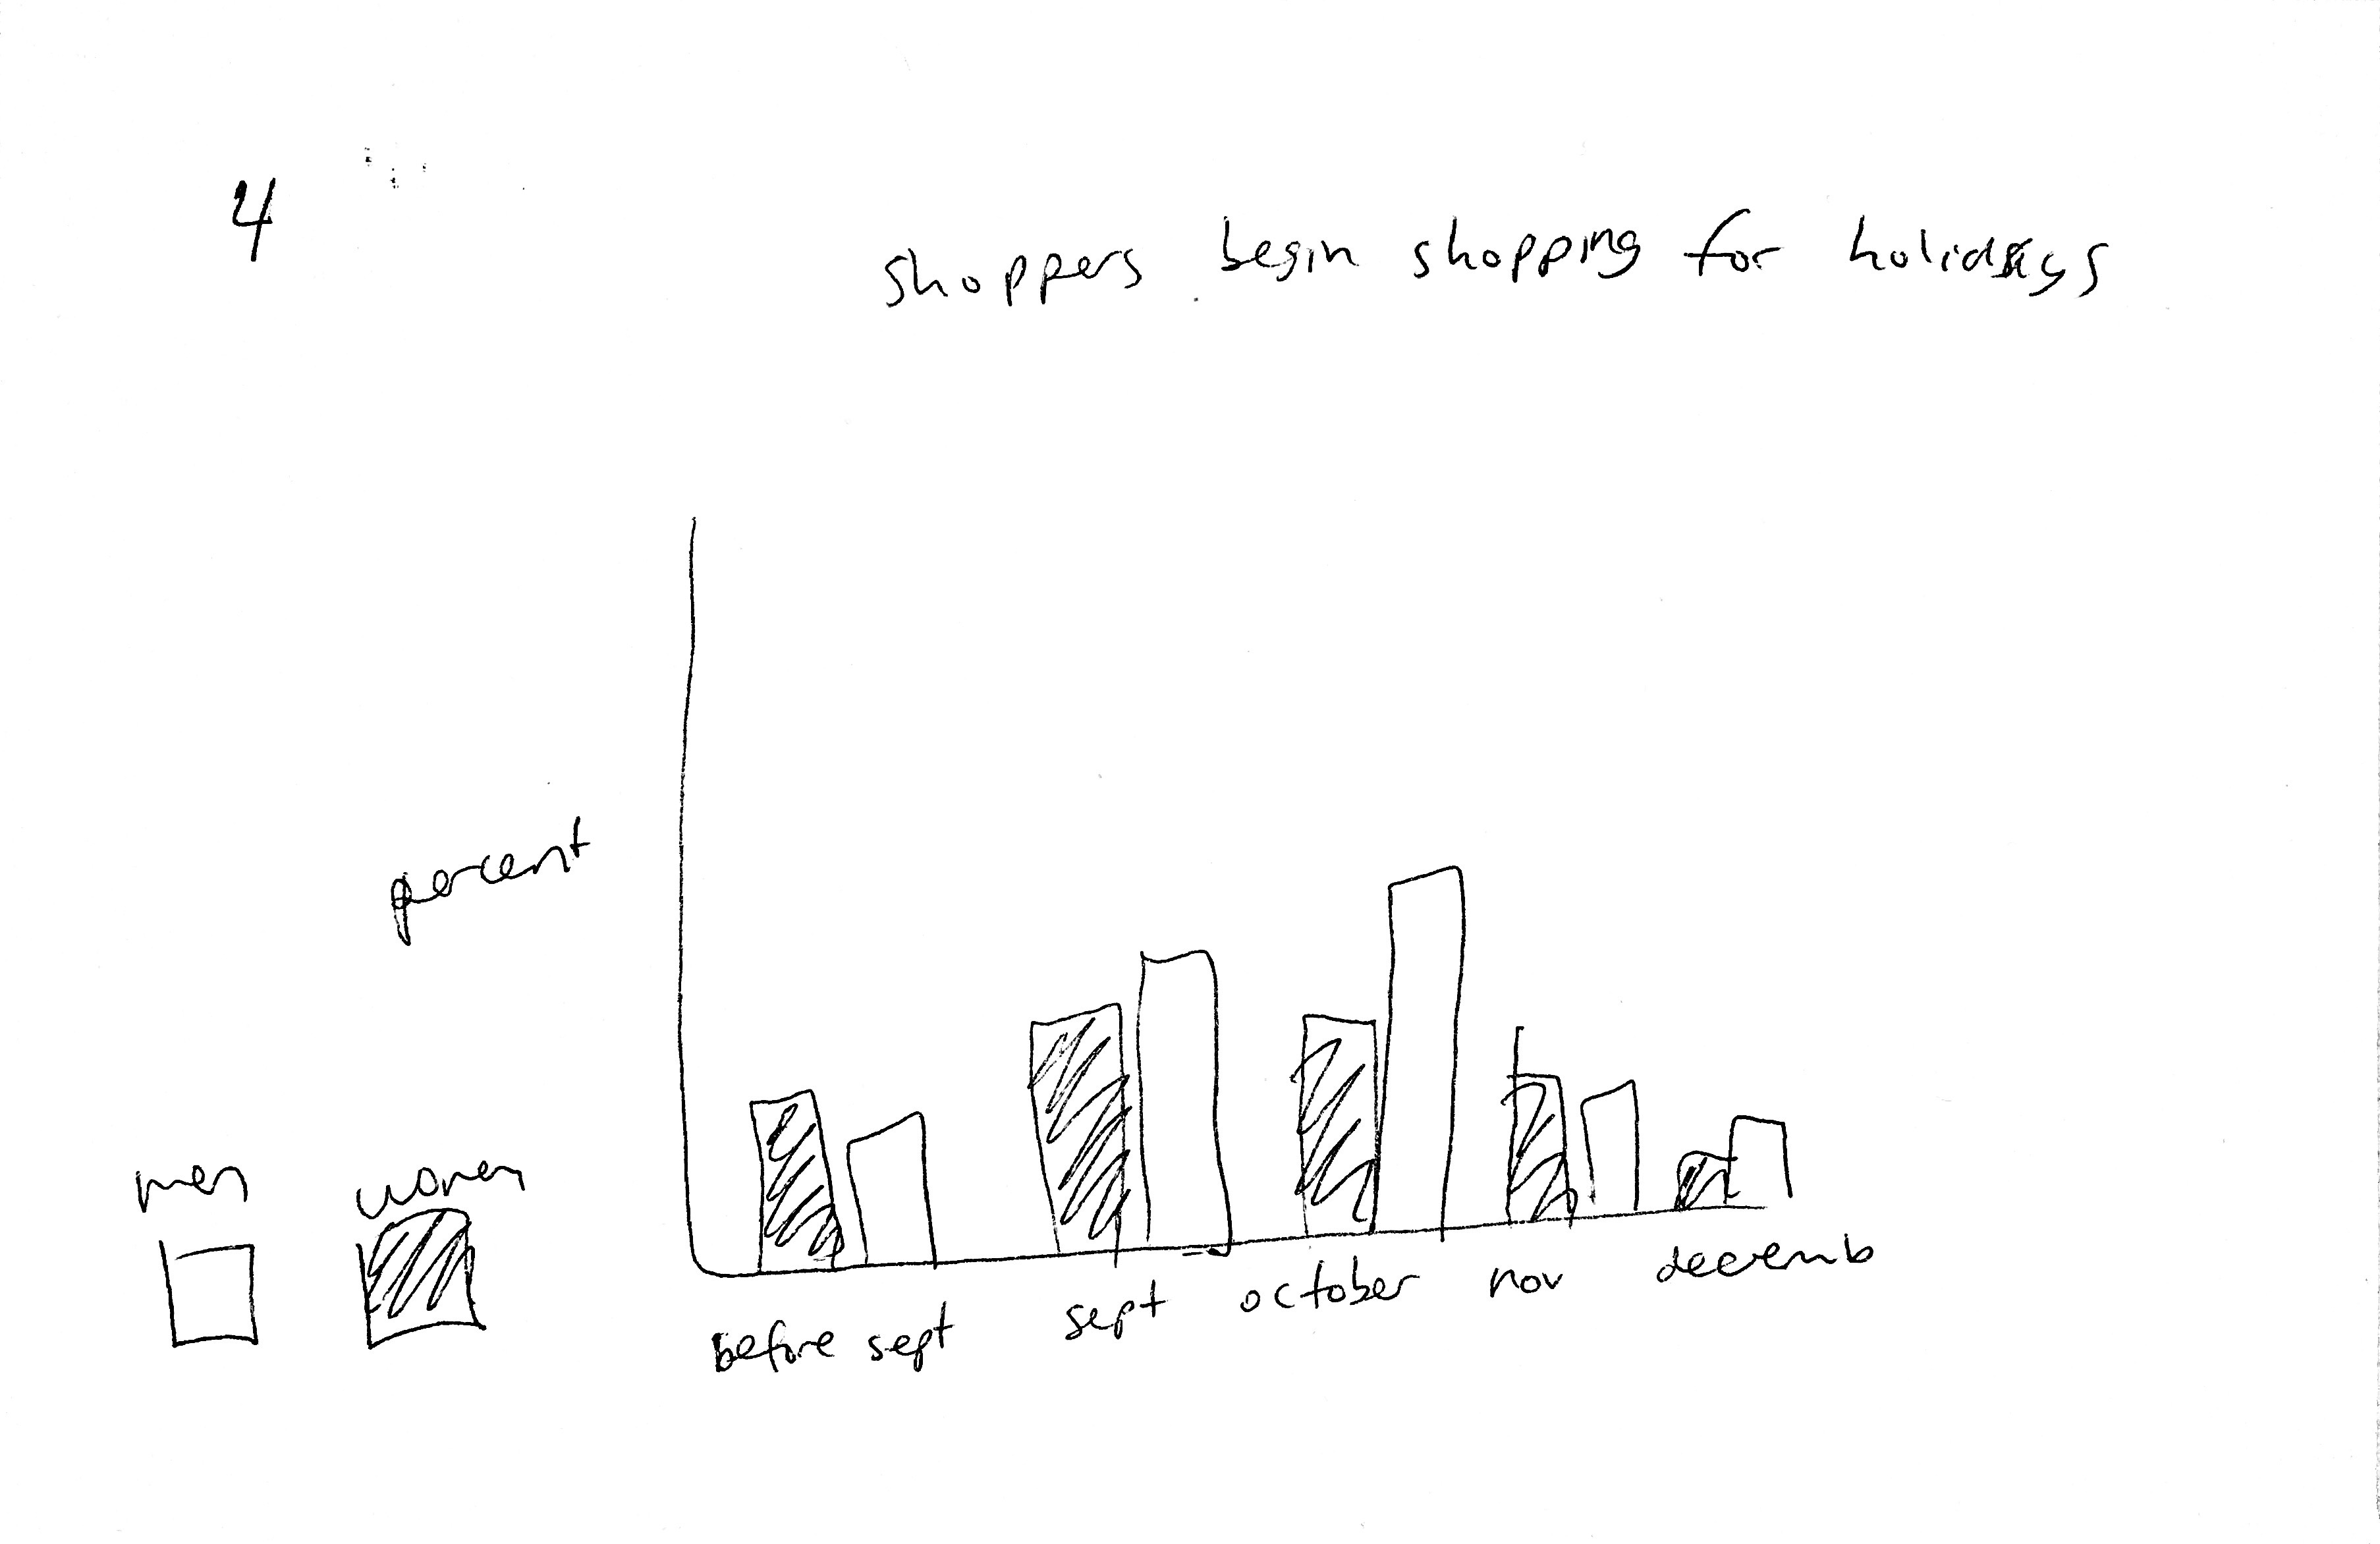 4
shoppers begin shopping for holidays
percent
men women
before sept sept october nov decemb